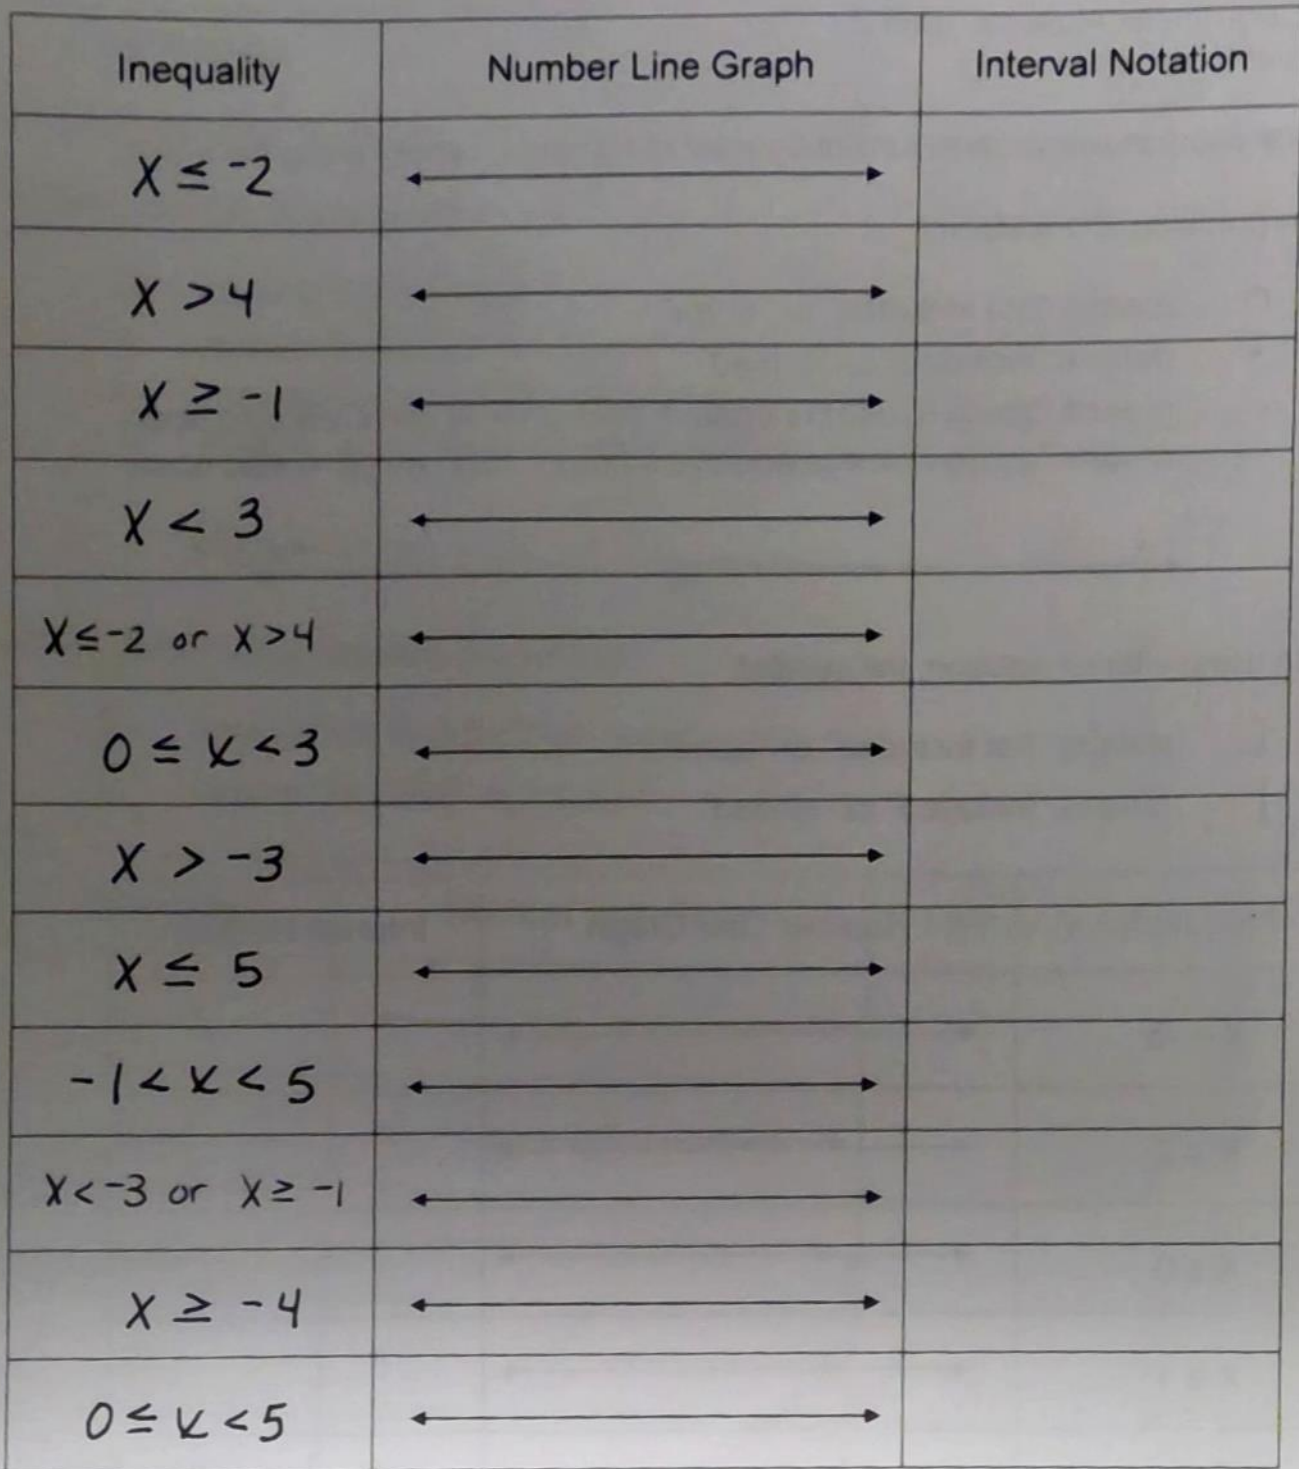 Inequality Number Line Graph Interval Notation
X ≤ -2
X > 4
X ≥ -1
X < 3
X ≤ -2 or X > 4
0 ≤ X < 3
X > -3
X ≤ 5
-1 < X < 5
X < -3 or X ≥ -1
X ≥ -4
0 ≤ X < 5